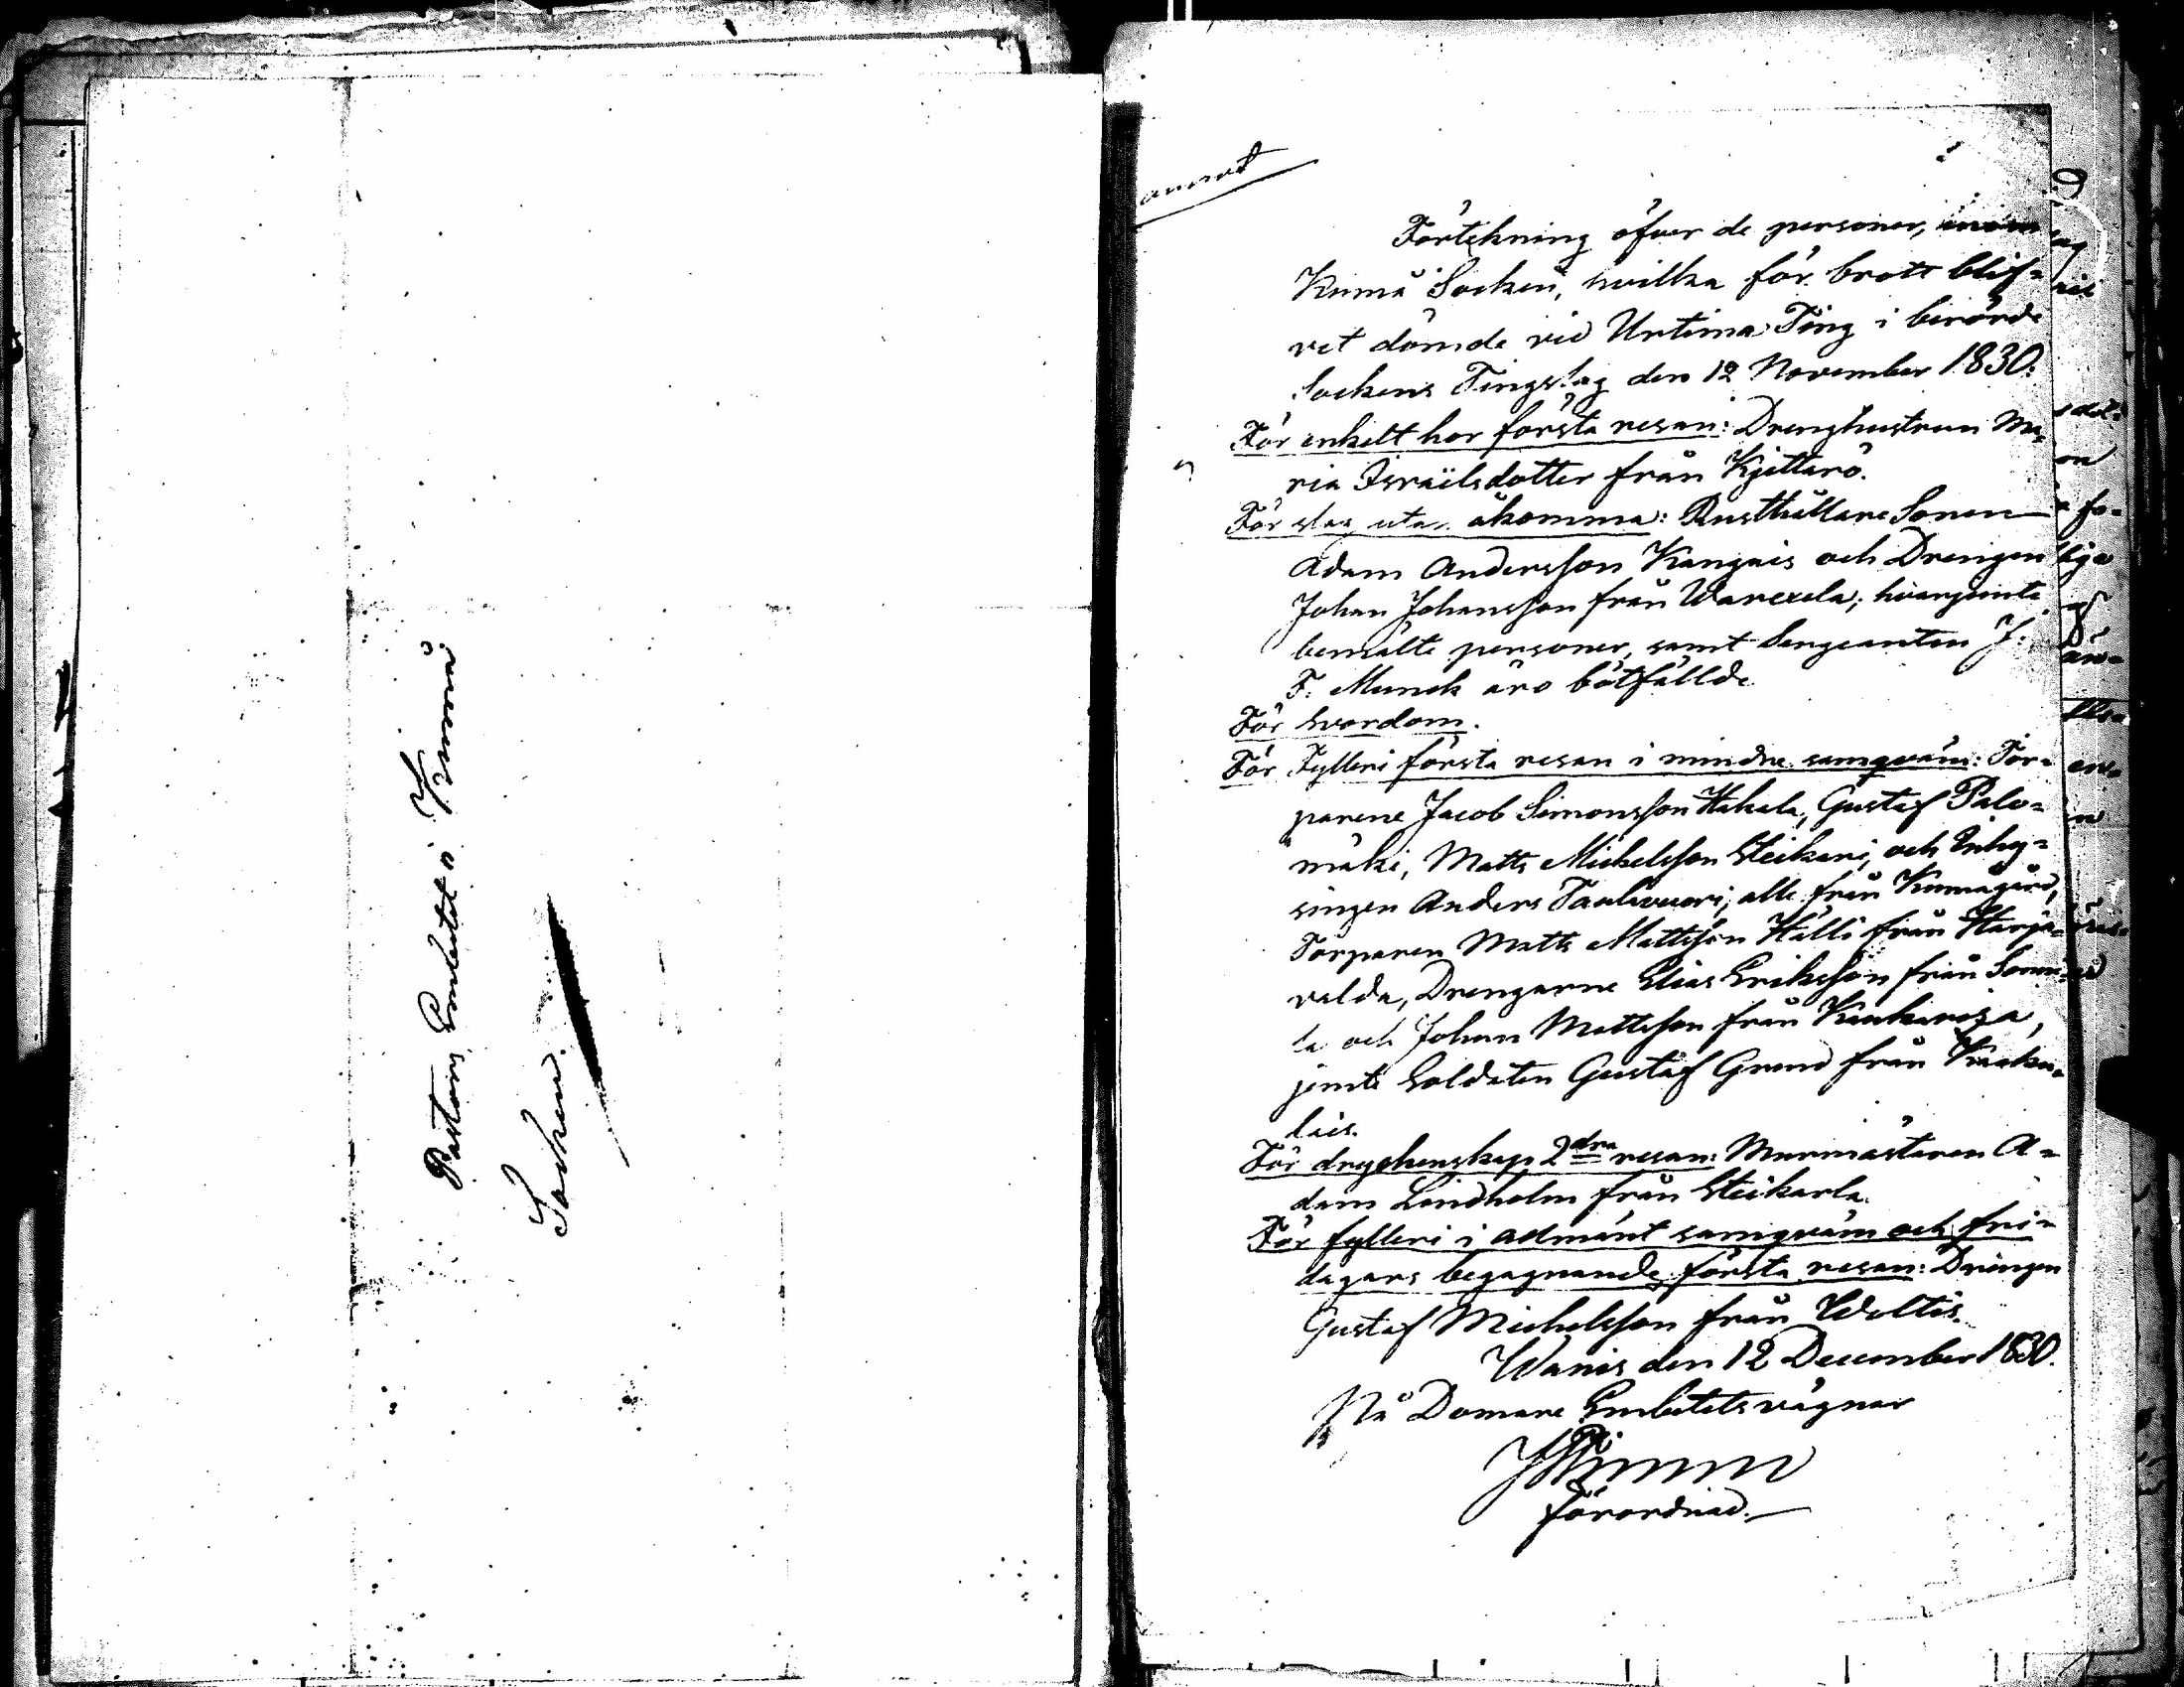 Pastors Embetet i Kumå
Socken.
Förtekning öfver de personer, inom
Kumå Socken, hvilka för brott blif-
vet dömde vid Urtima Ting i berörde
Sockens Tingslag den 12 November 1830.
För enkelt hor första resan: Drenghustrun Ma-
ria Israëlsdotter från Kjettarö.
För slag utan åkomma: Rusthållare Sonen
Adam Andersson Kangais och Drengen
Johan Johansson från Wareela; hvarjemte
bemälte personer, samt Sergeanten J:
F. Munck äro bötfällde
För svordom.
För Fylleri första resan i mindre samqväm: Tor-
parene Jacob Simonsson Hakala, Gustaf Palo-
mäki, Matts Michelsson Steikari, och Inhy-
singen Anders Taulavuori, alle från Kumågård,
Torparen Matts Mattsson Hälli från Harja-
valda, Drengarne Elias Eriksson från Sonni-
la och Johan Mattsson från Kaukarisa,
jemte Soldaten Gustaf Grund från Kraaku-
lais.
För dryckenskap 2dra resan: Murmästaren A-
dam Lindholm från Steikarla.
För fylleri i allmänt samqväm och fri-
dagars begagnande första resan: Drängen
Gustaf Michelsson från Woltis.
Wanis den 12 December 1830.
På Domare Embetets vägnar
förordnad.